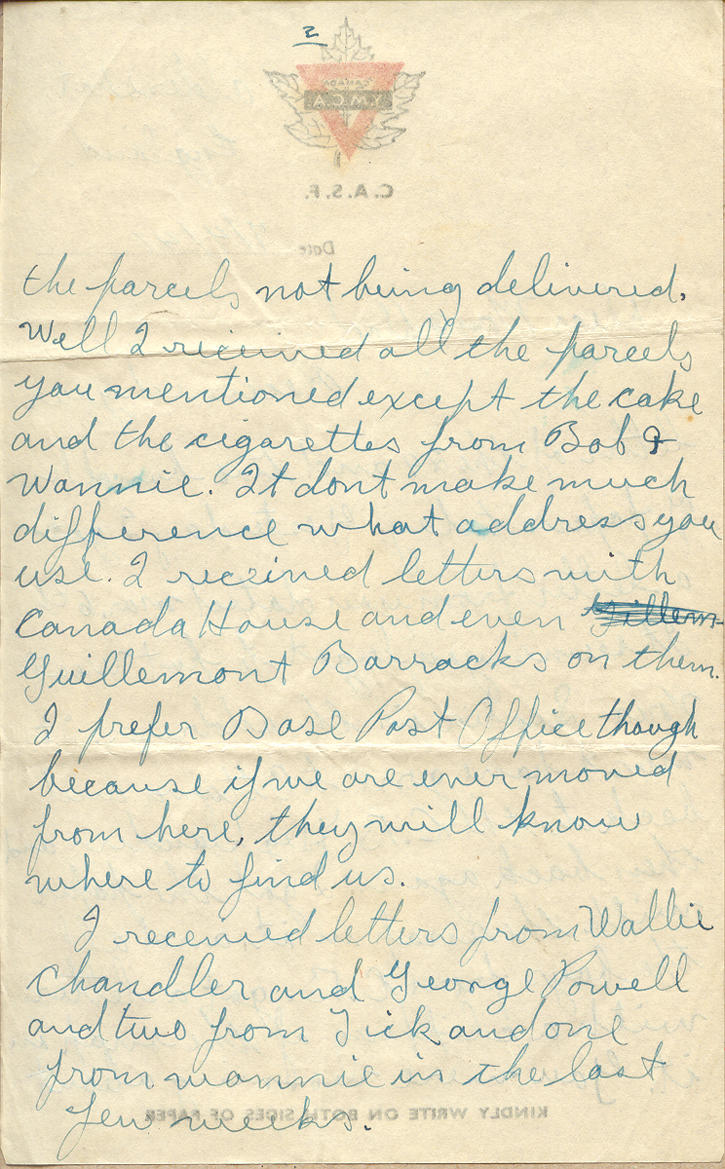 2
CANADA
Y.M.C.A.
C.A.S.F.
Date
the parcels not being delivered.
Well I received all the parcels
you mentioned except the cake
and the cigarettes from Bob &
Wannie. It dont make much
difference what address you
use. I received letters with
Canada House and even Gillem-
Guillemont Barracks on them.
I prefer Base Post Office though
because if we are ever moved
from here, they will know
where to find us.
I received letters from Wallie
Chandler and George Powell
and two from Tick and one
from wannie in the last
few weeks.
KINDLY WRITE ON BOTH SIDES OF PAPER